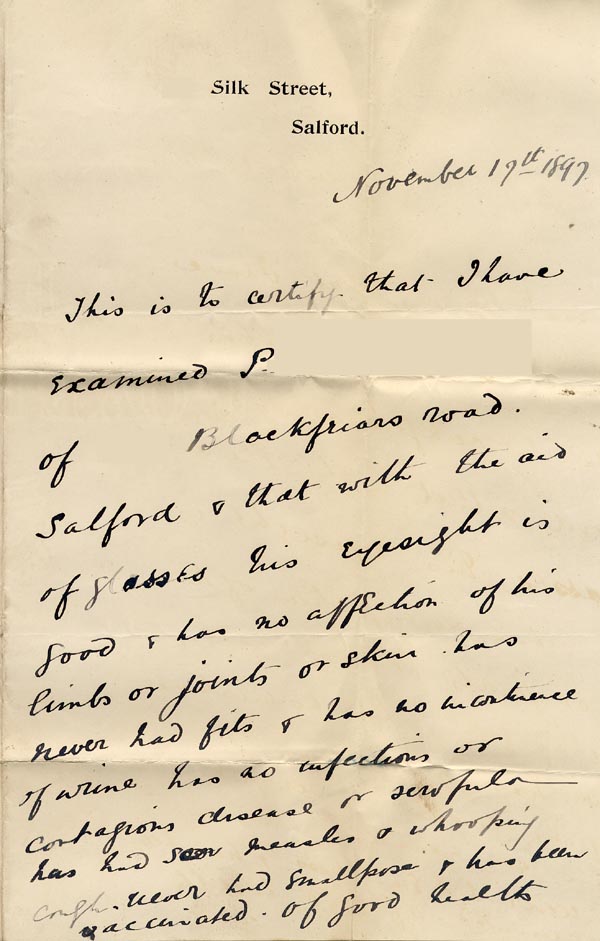 Silk Street,
Salford.
November 17th 1897
This is to certify that I have
examined P.
of Blackfriars road.
Salford & that with the aid
of glasses his eyesight is
good & has no affection of his
limbs or joints or skin has
never had fits & has no incontinence
of urine has no infectious or
contagious disease or scrofula
has had measles & whooping
cough. never had smallpox & has been
vaccinated. of good health